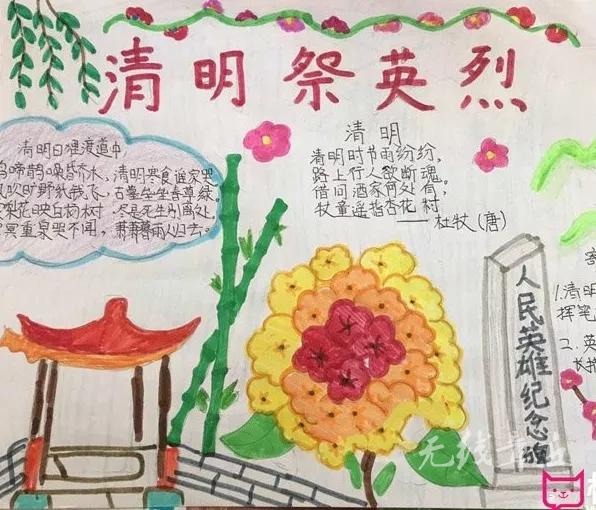 清明祭英烈
清明日狸渡道中
啼鹊噪昏乔木，清明寒食谁家哭。
吹旷野纸钱飞，古墓垒垒春草绿。
梨花映白杨树，尽是死生别离处。
冥重泉哭不闻，萧萧暮雨人归去。
清明
清明时节雨纷纷，
路上行人欲断魂。
借问酒家何处有，
牧童遥指杏花村
——杜牧(唐)
人民英雄纪念碑
1.清明
挥笔
2.英
长